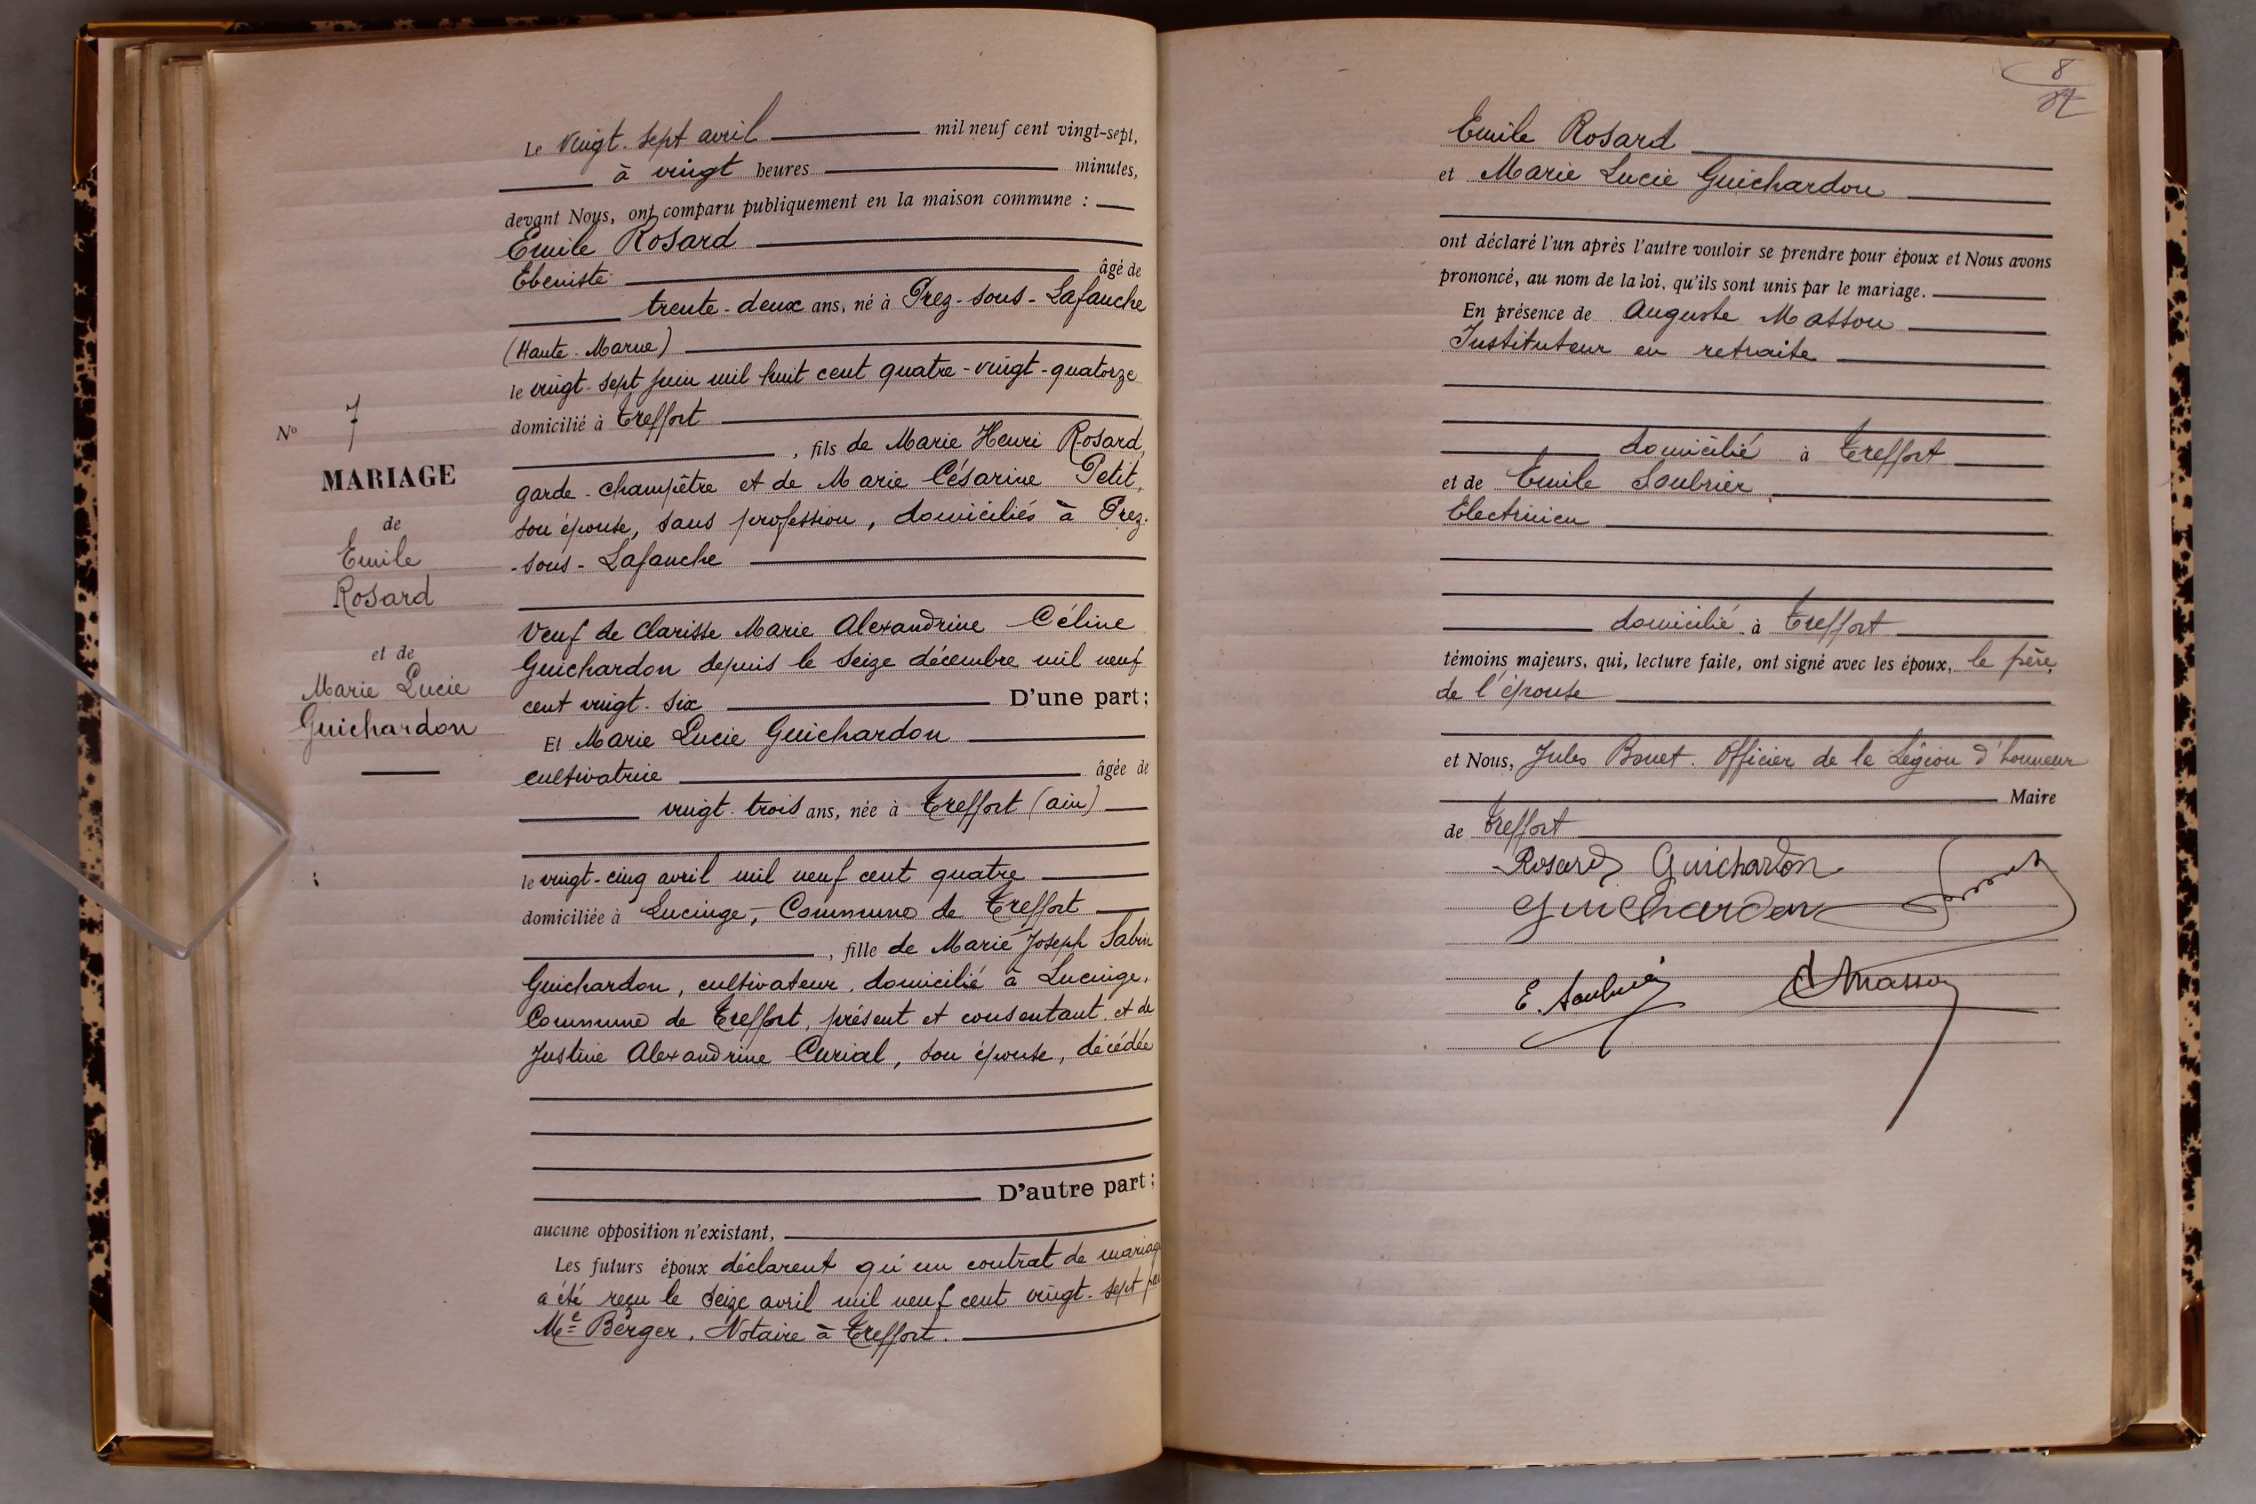 Le vingt-sept avril mil neuf cent vingt-sept,
à vingt heures minutes,
devant Nous, ont comparu publiquement en la maison commune :
Emile Rosard
Ebeniste âgé de
trente-deux ans, né à Prez-sous-Lafauche
(Haute-Marne)
le vingt-sept juin mil huit cent quatre-vingt-quatorze
domicilié à Treffort
, fils de Marie Henri Rosard,
garde-champêtre et de Marie Césarine Petit,
son épouse, sans profession, domiciliés à Prez-
-sous-Lafauche
Veuf de Clarisse Marie Alexandrine Céline
Guichardon depuis le seize décembre mil neuf
cent vingt-six D'une part ;
Et Marie Lucie Guichardon
cultivatrice âgée de
vingt-trois ans, née à Treffort (ain)
le vingt-cinq avril mil neuf cent quatre
domiciliée à Lucinge, Commune de Treffort
, fille de Marie Joseph Sabin
Guichardon, cultivateur, domicilié à Lucinge,
Commune de Treffort, présent et consentant, et de
Justine Alexandrine Curial, son épouse, décédée
D'autre part ;
aucune opposition n'existant,
Les futurs époux déclarent qu'un contrat de mariage
a été reçu le seize avril mil neuf cent vingt-sept par
Me Berger, Notaire à Treffort.
No 7
MARIAGE
de
Emile
Rosard
et de
Marie Lucie
Guichardon
8
Emile Rosard
et Marie Lucie Guichardon
ont déclaré l'un après l'autre vouloir se prendre pour époux et Nous avons
prononcé, au nom de la loi, qu'ils sont unis par le mariage.
En présence de Auguste Masson
Instituteur en retraite
domicilié à Treffort
et de Emile Saubrier
Electricien
domicilié à Treffort
témoins majeurs, qui, lecture faite, ont signé avec les époux, le père
de l'épouse
et Nous, Jules Bonet. Officier de la Légion d'honneur
Maire
de Treffort
Rosard Guichardon
Guichardon
E. Saubrier Masson